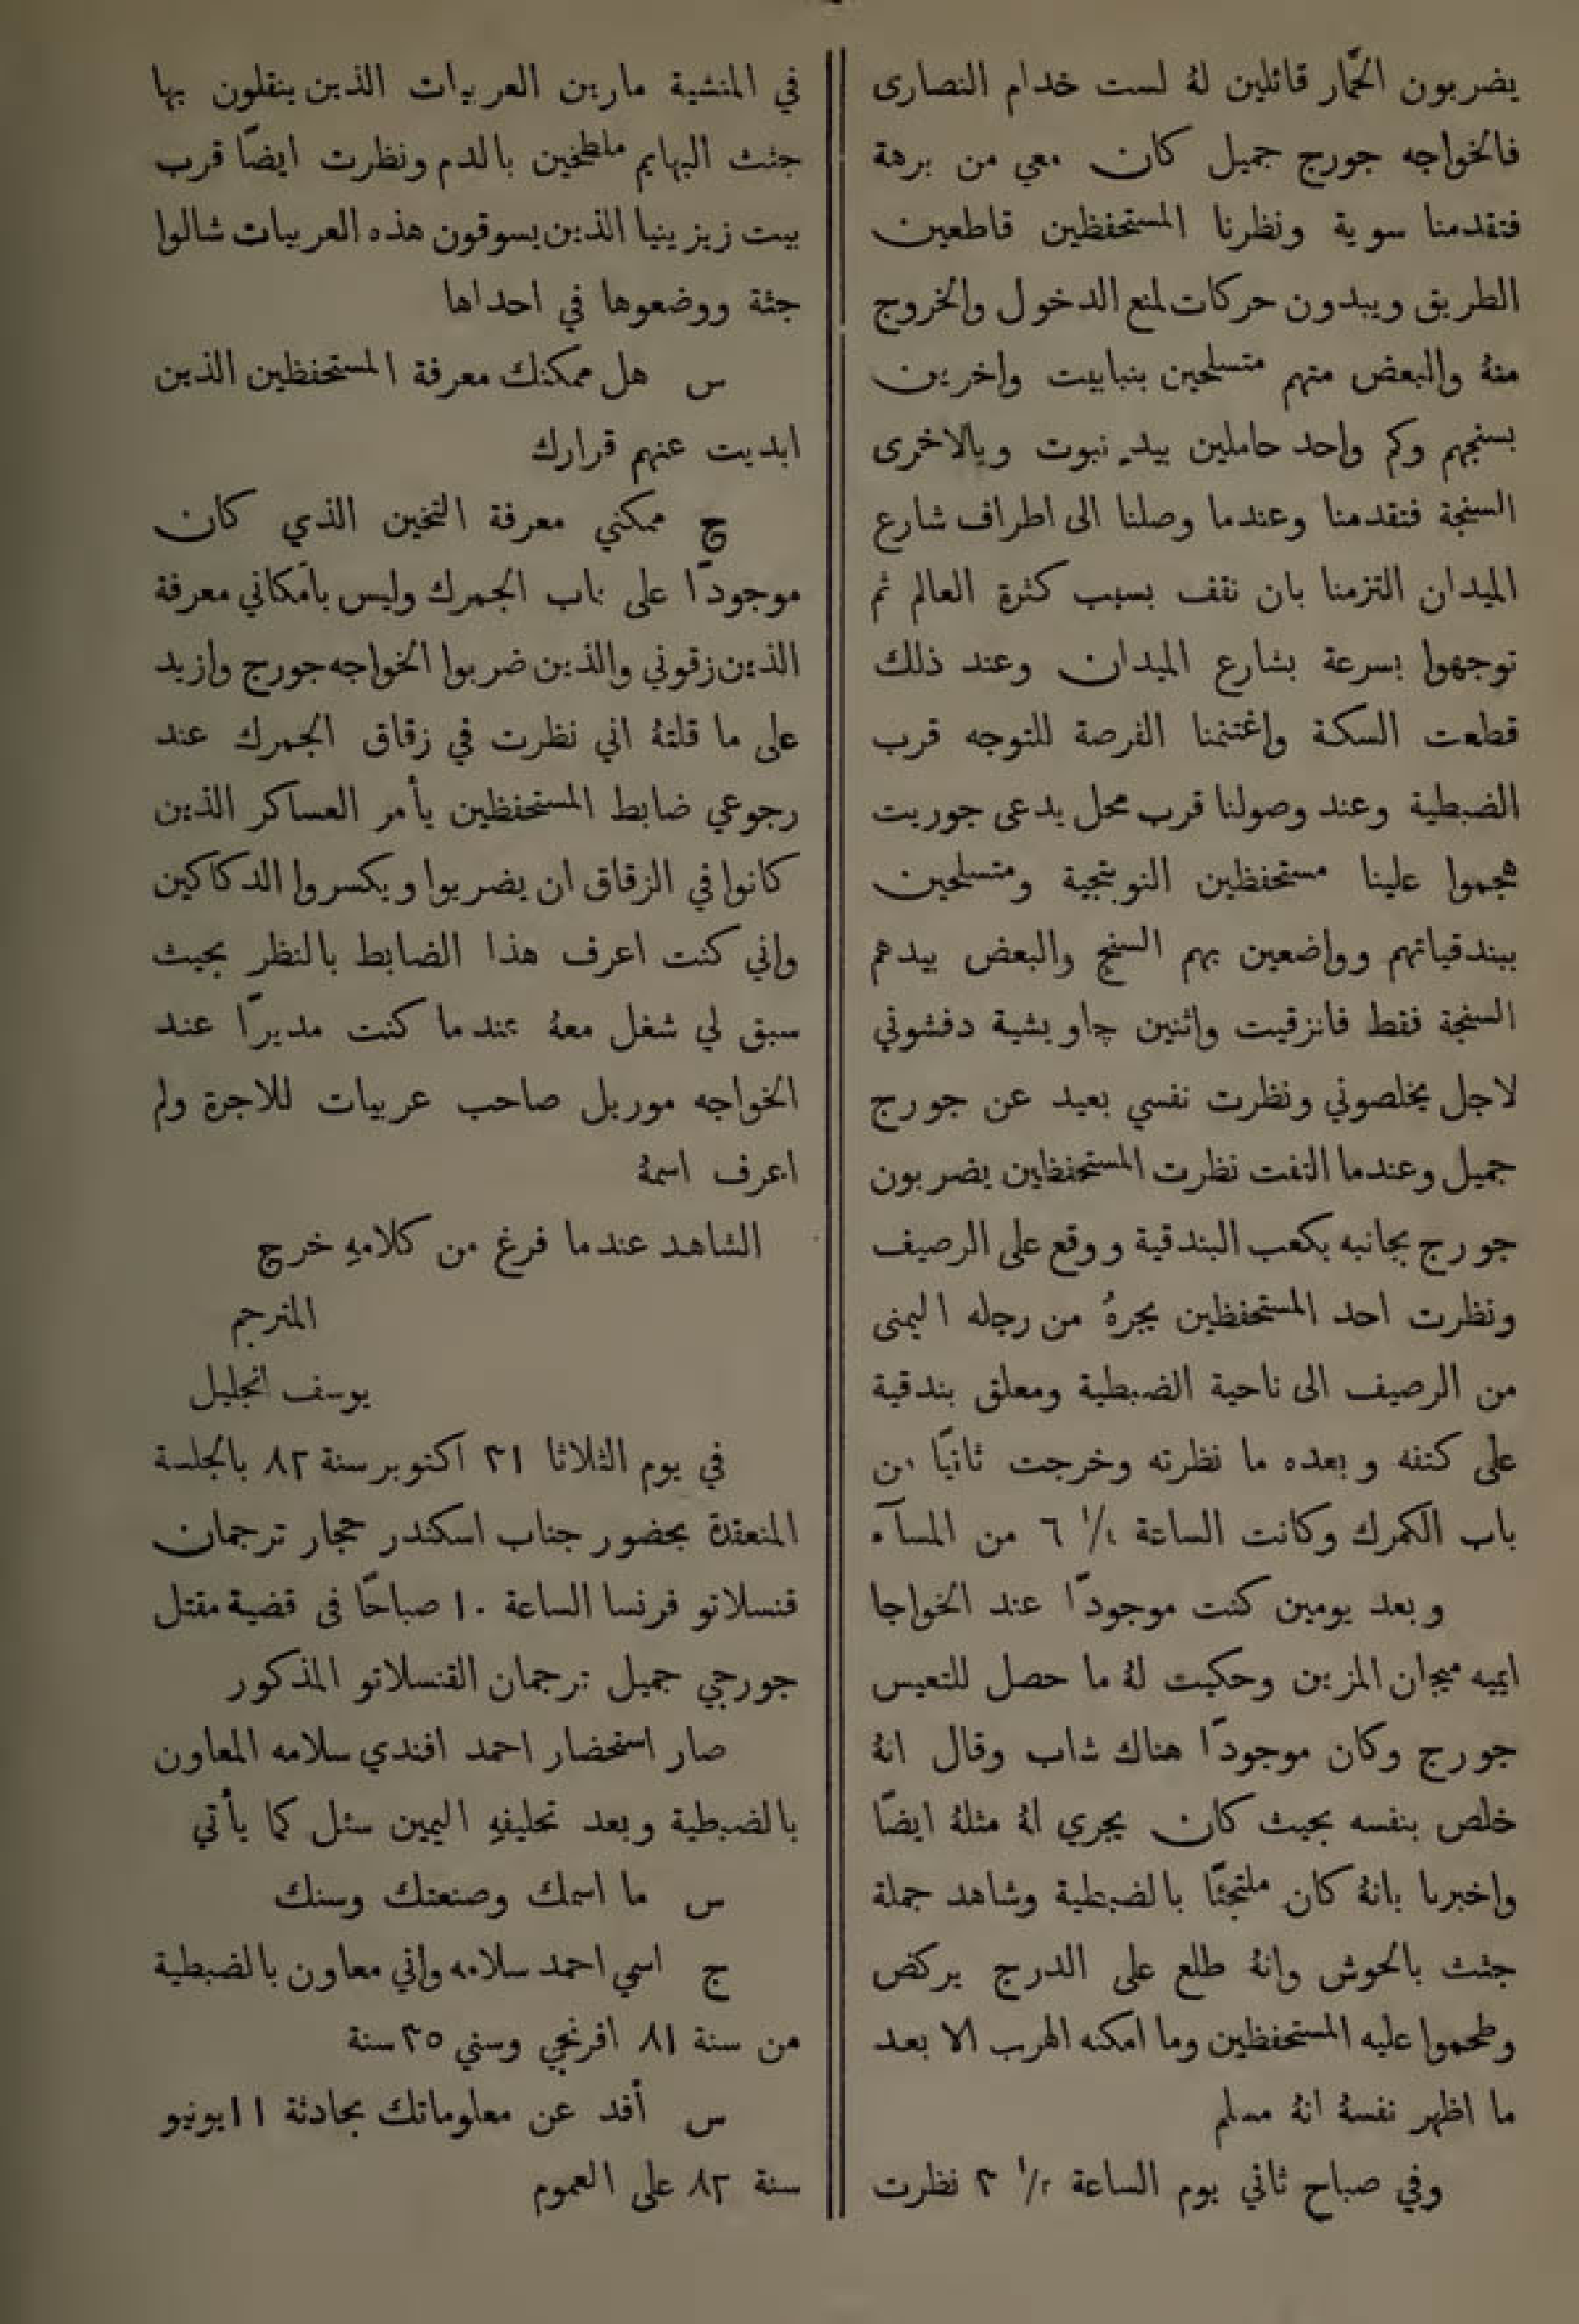 يضربون الحمّار قائلين لهُ لست خدام النصارى
فالخواجه جورج جميل كان معي من برهة
فتقدمنا سوية ونظرنا المستحفظين قاطعين
الطريق ويبدون حركات لمنع الدخول والخروج
منهُ والبعض منهم متسلحين بنبابيت واخرين
بسنجهم وكم واحد حاملين بيدهِ نبوت وبالاخرى
السنجة فتقدمنا وعندما وصلنا الى اطراف شارع
الميدان التزمنا بان نقف بسبب كثرة العالم ثم
توجهوا بسرعة بشارع الميدان وعند ذلك
قطعت السكة واغتنمنا الفرصة للتوجه قرب
الضبطية وعند وصولنا قرب محل يدعى جوريت
هجموا علينا مستحفظين النوبتجية ومتسلحين
ببندقياتهم وواضعين بهم السنج والبعض بيدهم
السنجة فقط فانزقيت واثنين چاويشية دفشوني
لاجل يخلصوني ونظرت نفسي بعيد عن جورج
جميل وعندما التفت نظرت المستحفظين يضربون
جورج بجانبه بكعب البندقية ووقع على الرصيف
ونظرت احد المستحفظين يجرهُ من رجله اليمنى
من الرصيف الى ناحية الضبطية ومعلق بندقية
على كتفه وبعده ما نظرته وخرجت ثانيًا من
باب الكمرك وكانت الساعة ١/٤ ٦ من المسآء
وبعد يومين كنت موجودًا عند الخواجا
ايميه ميجان المزين وحكيت لهُ ما حصل للتعيس
جورج وكان موجودًا هناك شاب وقال انهُ
خلص بنفسه بحيث كان يجري لهُ مثلهُ ايضًا
واخبرنا بانهُ كان ملتجئًا بالضبطية وشاهد جملة
جثث بالحوش وانهُ طلع على الدرج يركض
وطحموا عليه المستحفظين وما امكنه الهرب الا بعد
ما اظهر نفسهُ انهُ مسلم
وفي صباح ثاني يوم الساعة ١/٢ ٢ نظرت
في المنشية مارين العربيات الذين ينقلون بها
جثث البهايم ملطخين بالدم ونظرت ايضًا قرب
بيت زيزينيا الذين يسوقون هذه العربيات شالوا
جثة ووضعوها في احداها
س هل ممكنك معرفة المستحفظين الذين
ابديت عنهم قرارك
ج ممكني معرفة التخين الذي كان
موجودًا على باب الجمرك وليس بامكاني معرفة
الذين زقوني والذين ضربوا الخواجه جورج وازيد
على ما قلتهُ اني نظرت في زقاق الجمرك عند
رجوعي ضابط المستحفظين يأمر العساكر الذين
كانوا في الزقاق ان يضربوا ويكسروا الدكاكين
واني كنت اعرف هذا الضابط بالنظر بحيث
سبق لي شغل معهُ عندما كنت مديرًا عند
الخواجه موريل صاحب عربيات للاجرة ولم
اعرف اسمهُ
الشاهد عندما فرغ من كلامهِ خرج
المترجم
يوسف انجليل
في يوم الثلاثا ٣١ اكتوبر سنة ٨٢ بالجلسة
المنعقدة بحضور جناب اسكندر حجار ترجمان
قنسلاتو فرنسا الساعة ١٠ صباحًا فى قضية مقتل
جورجي جميل ترجمان القنسلاتو المذكور
صار استحضار احمد افندي سلامه المعاون
بالضبطية وبعد تحليفهِ اليمين سئل كما يأتي
س ما اسمك وصنعتك وسنك
ج اسمي احمد سلامه واني معاون بالضبطية
من سنة ٨١ افرنجي وسني ٣٥ سنة
س أفد عن معلوماتك بحادثة ١١ يونيو
سنة ٨٢ على العموم